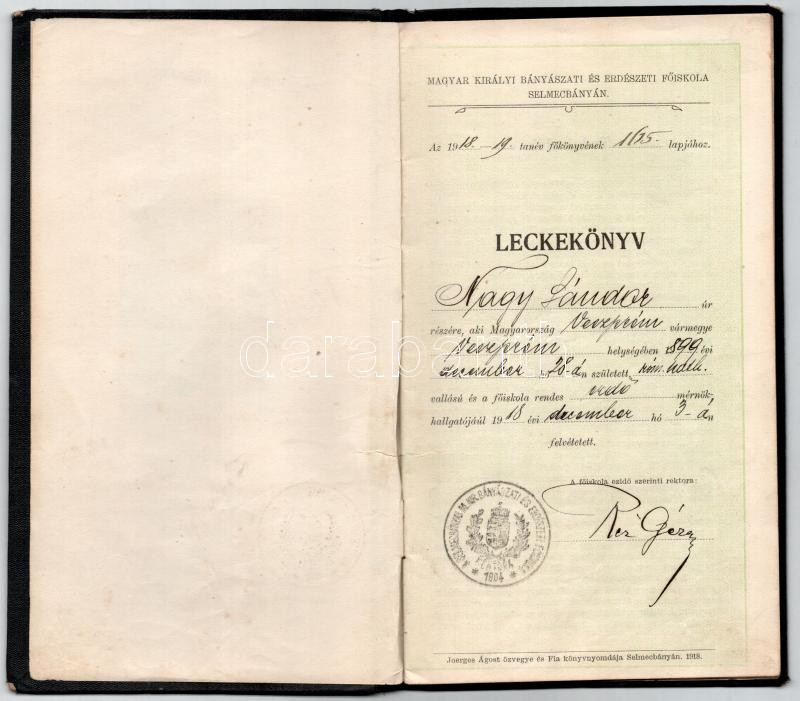 MAGYAR KIRÁLYI BÁNYÁSZATI ÉS ERDÉSZETI FŐISKOLA
SELMECBÁNYÁN.
Az 1918.-19. tanév főkönyvének 165. lapjához.
LECKEKÖNYV
Nagy Sándor úr
részére, aki Magyarország Veszprém vármegye
Veszprém helységében 1899 évi
december 28-án született róm. kath.
vallású és a főiskola rendes erdő mérnök-
hallgatójául 1918 évi december hó 3-án
felvétetett.
A főiskola ezidő szerinti rektora:
Réz Géza
1904
Joerges Ágost özvegye és Fia könyvnyomdája Selmecbányán. 1918.
darabanth